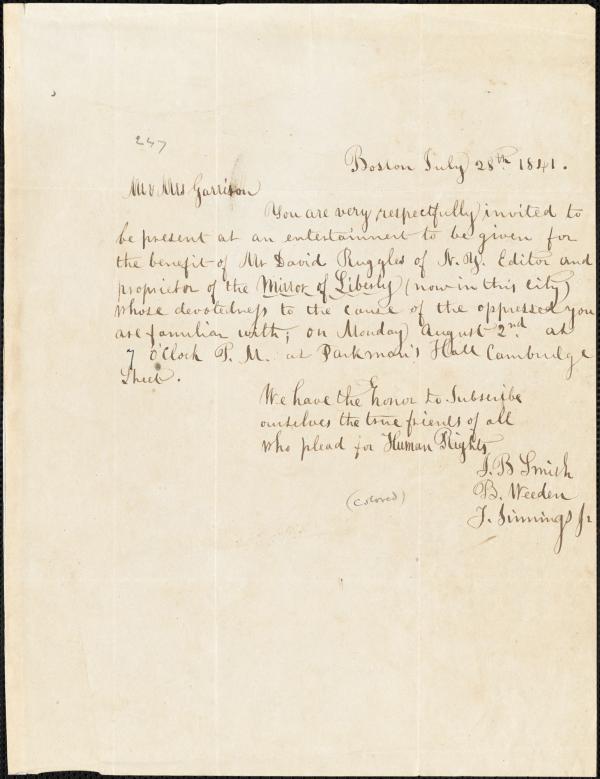 247
Boston July 28th 1841.
Mr & Mrs Garrison
You are very respectfully invited to
be present at an entertainment to be given for
the benefit of Mr David Ruggles of N. Y. Editor and
proprietor of the Mirror of Liberty (now in this city)
whose devotedness to the cause of the oppressed you
are familiar with; on Monday August 2nd at
7 o'Clock P. M. at Parkman's Hall Cambridge
Street.
We have the honor to Subscribe
ourselves the true friends of all
who plead for Human Rights
J. B Smith
B. Weeden
T. Jinnings Jr
(colored)